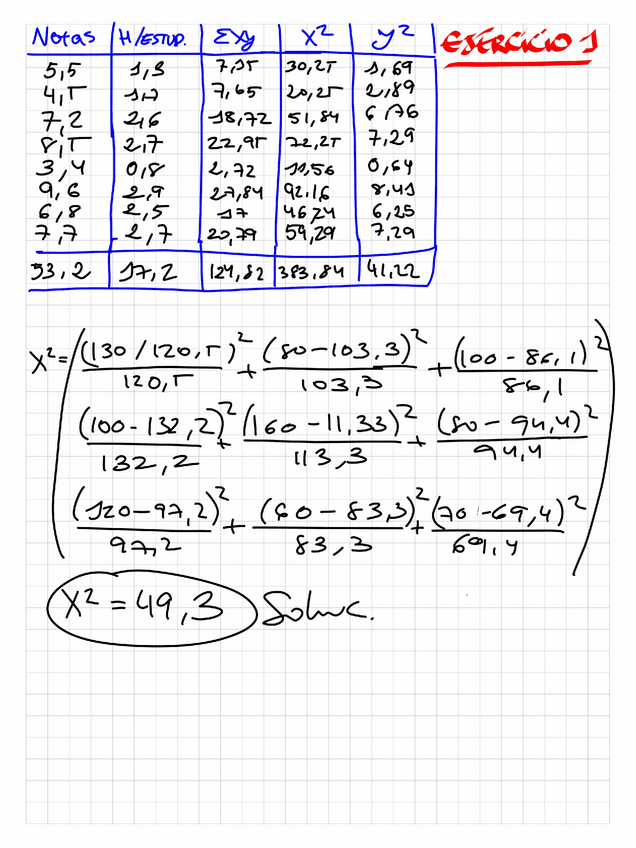 Notas H/ESTUD. Σxy X² y² EJERCICIO 1
5,5 1,3 7,15 30,25 1,69
4,5 1,7 7,65 20,25 2,89
7,2 2,6 18,72 51,84 6,76
8,5 2,7 22,95 72,25 7,29
3,4 0,8 2,72 11,56 0,64
9,6 2,9 27,84 92,16 8,41
6,8 2,5 17 46,24 6,25
7,7 2,7 20,79 59,29 7,29
53,2 17,2 124,82 383,84 41,22
X² = ( (130 / 120,5)²/120,5 + (80 - 103,3)²/103,3 + (100 - 86,1)²/86,1
(100 - 132,2)²/132,2 + (160 - 11,33)²/113,3 + (80 - 94,4)²/94,4
(120 - 97,2)²/97,2 + (60 - 83,3)²/83,3 + (70 - 69,4)²/69,4 )
X² = 49,3 Soluc.